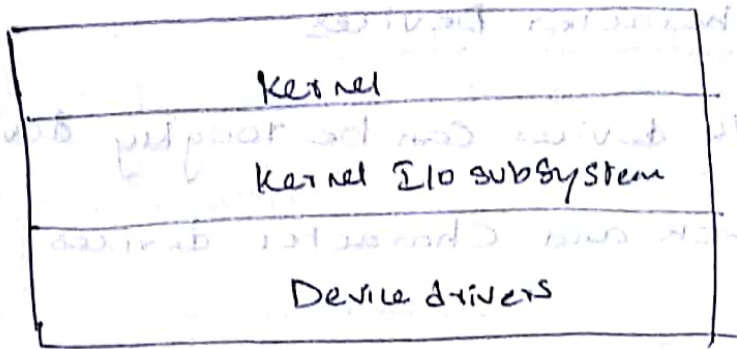 Kernel
Kernel I/O subsystem
Device drivers